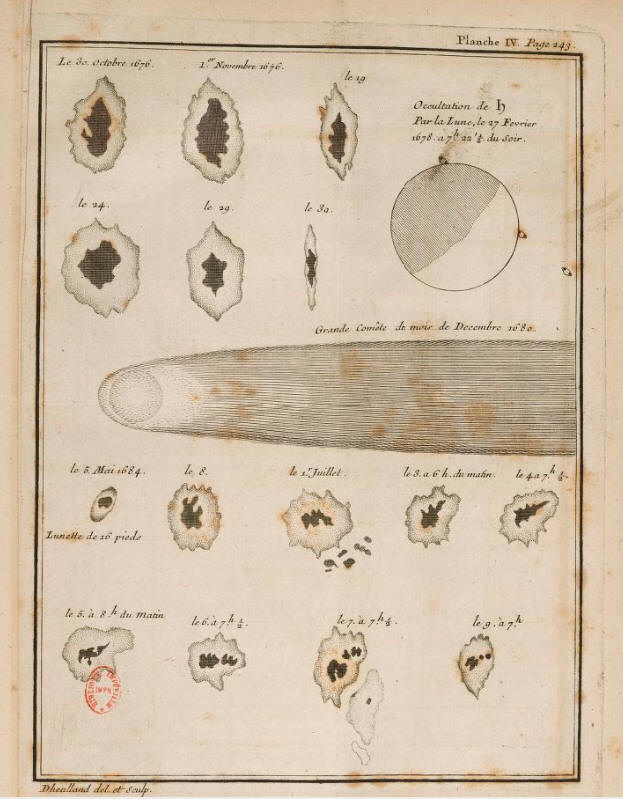 Planche IV. Page 243.
Le 30. Octobre 1676.
1.er Novembre 1676.
le 19
Occultation de ♄
Par la Lune, le 27 Fevrier
1678. a 7h 22' ½. du Soir.
le 24.
le 29.
le 30.
Grande Comête de mois de Decembre 1680.
le 5. Mai 1684.
le 8.
le 1.er Juillet.
le 3. a 6 h. du matin.
le 4 a 7.h ½
Lunette de 16 pieds
le 5. à 8 h du matin
le 6. à 7h ½.
le 7. à 7h ½.
le 9. à 7h
IMPR.
Dheulland del. et Sculp.